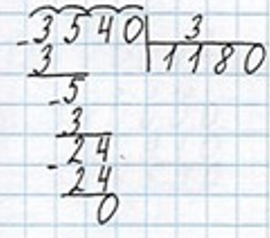 3540 3
-3 1180
-5
3
-24
24
0